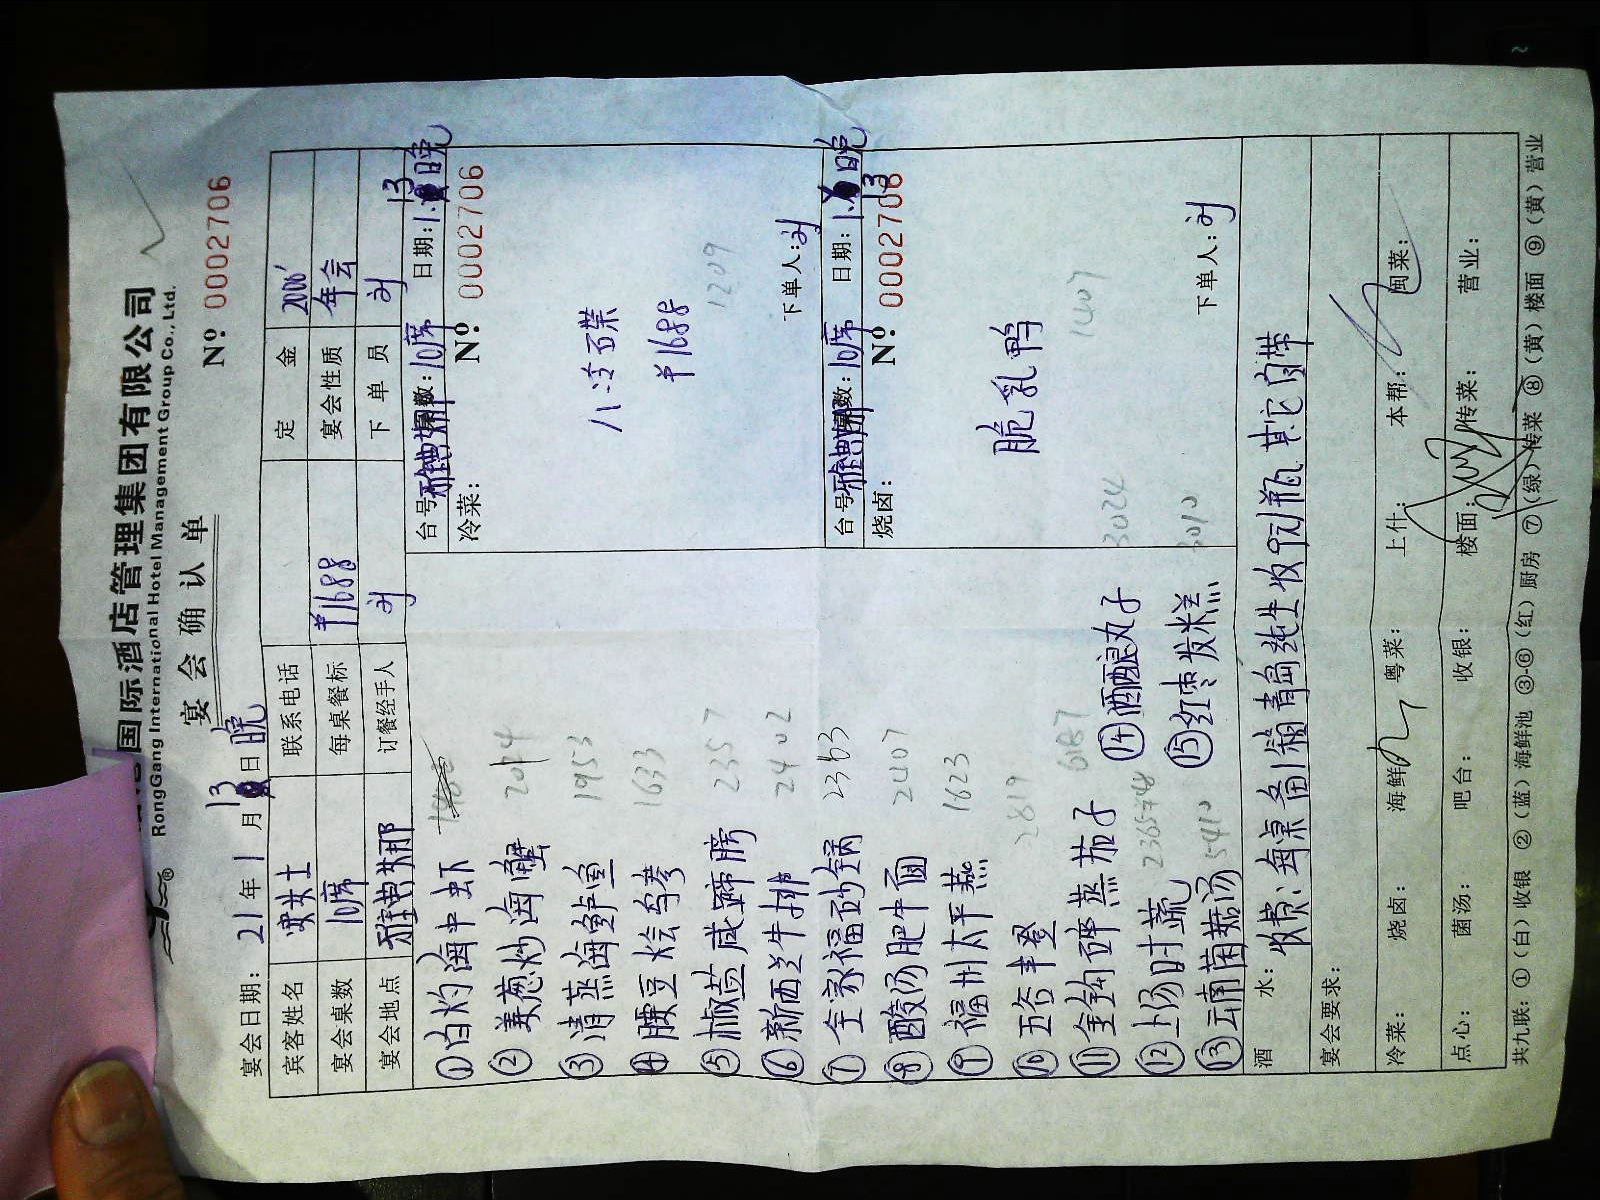 国际酒店管理集团有限公司
RongGang International Hotel Management Group Co., Ltd.
宴会确认单
№ 0002706
宴会日期: 21年1月13日晚
宾客姓名 女士 联系电话 定金 2000
宴会桌数 10席 每桌餐标 ¥1688 宴会性质 年会
宴会地点 雅典娜 订餐经手人 刘 下单员 刘
①白灼海中虾
② 姜葱炒海蟹 2024
③清蒸海鲈鱼 1953
④腰豆烩乌参 1633
⑤椒盐咸蹄膀 2357
⑥新西兰牛排 2402
⑦全家福砂锅 2363
⑧酸汤肥牛面 2407
⑨福州太平燕 1623
⑩五谷丰登 2819
⑪金钩碎蒸茄子 6187
⑫上汤时蔬
⑬云南菌菇汤 5410
⑭酒酿丸子 3024
⑮红枣发糕 3010
台号: 雅典娜 桌数: 10席 日期: 1.13日晚
冷菜: № 0002706
八冷碟
¥1688
1209
下单人: 刘
台号: 雅典娜 桌数: 10席 日期: 1.13日晚
烧卤: № 0002706
脆乳鸭
1407
下单人: 刘
酒水: 收费: 每桌备1箱青岛纯生收9元/瓶 其它自带
宴会要求:
冷菜: 烧卤: 海鲜: 粤菜: 上什: 本帮: 闽菜:
点心: 菌汤: 吧台: 收银: 楼面: 传菜: 营业:
共九联: ①(白)收银 ②(蓝)海鲜池 ③-⑥(红)厨房 ⑦(绿)传菜 ⑧(黄)楼面 ⑨(黄)营业